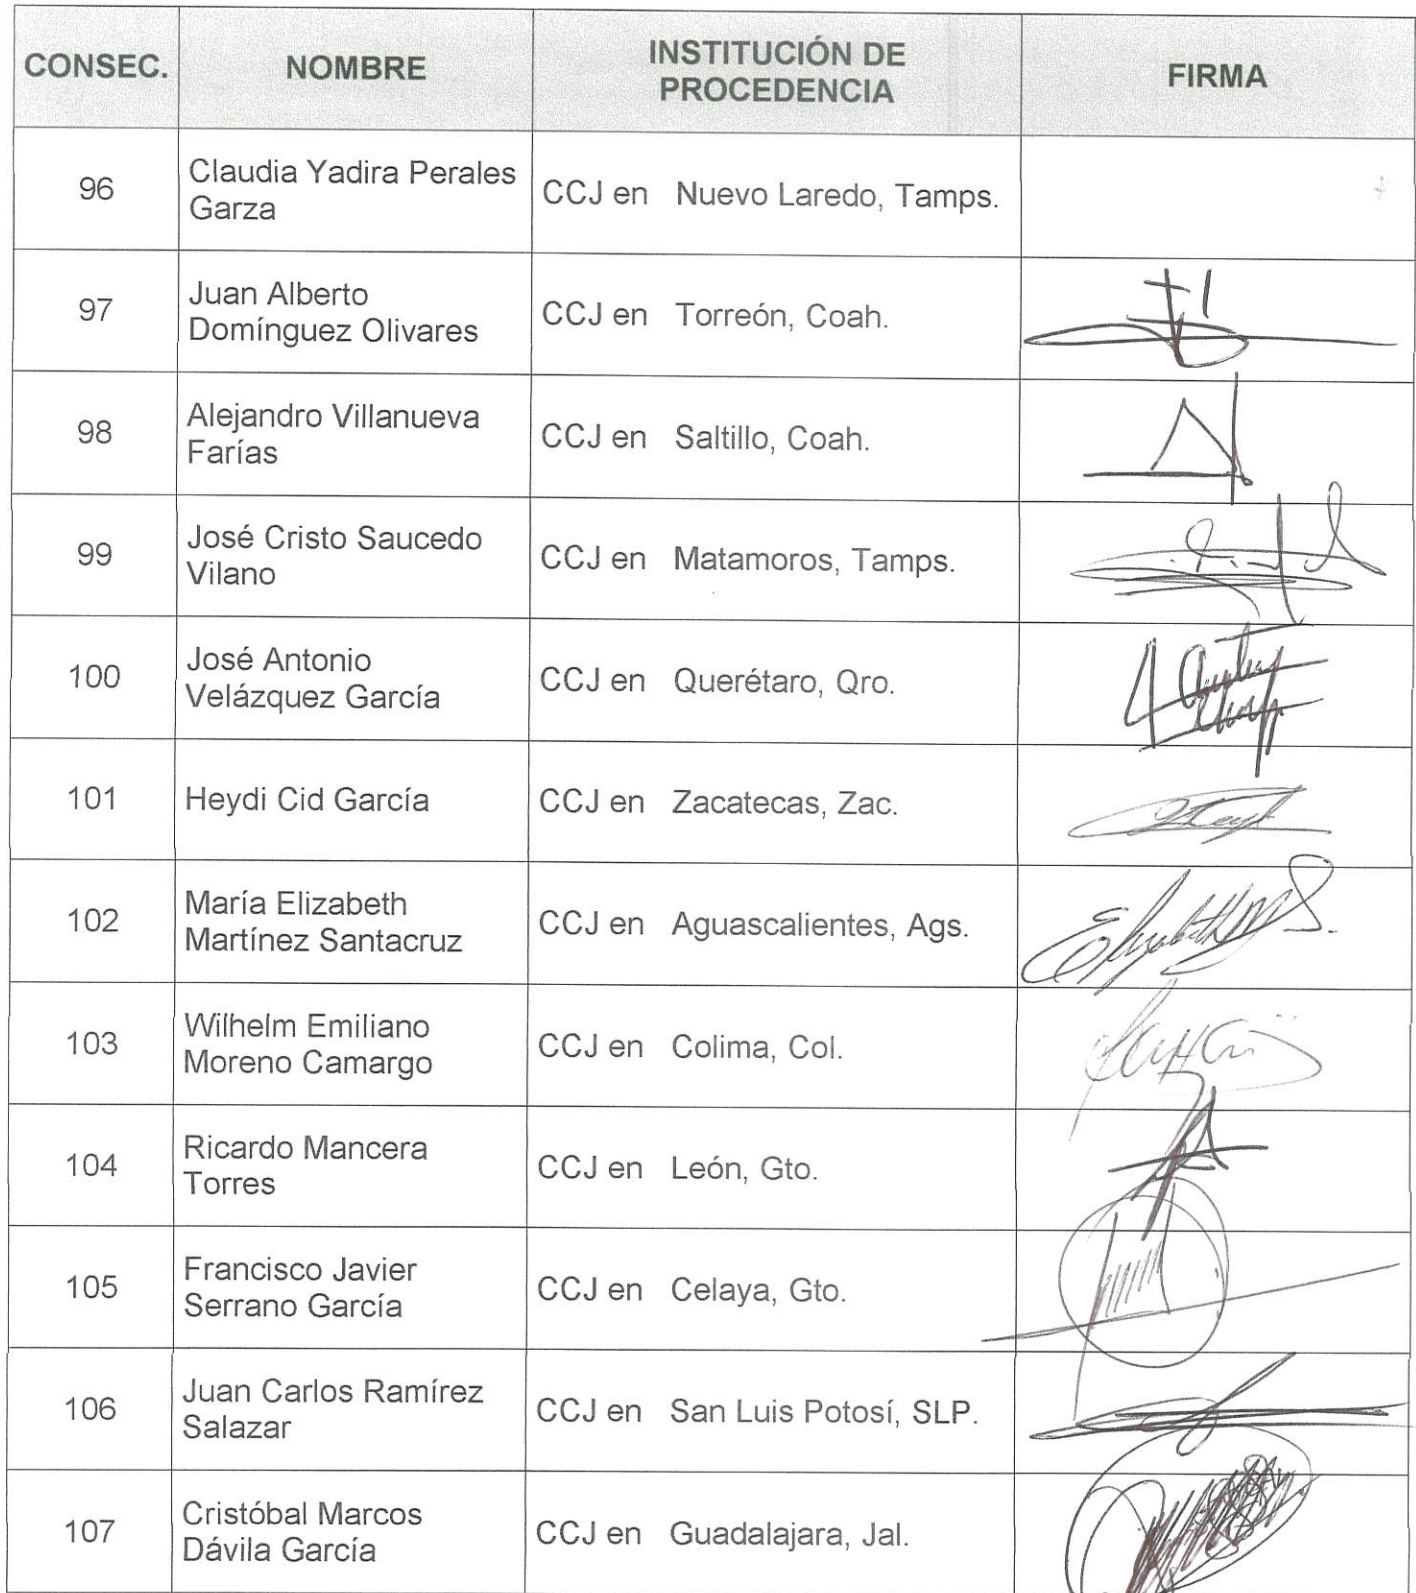 CONSEC.
NOMBRE
INSTITUCIÓN DE
PROCEDENCIA
FIRMA
96
Claudia Yadira Perales
Garza
CCJ en Nuevo Laredo, Tamps.
97
Juan Alberto
Domínguez Olivares
CCJ en Torreón, Coah.
98
Alejandro Villanueva
Farías
CCJ en Saltillo, Coah.
99
José Cristo Saucedo
Vilano
CCJ en Matamoros, Tamps.
100
José Antonio
Velázquez García
CCJ en Querétaro, Qro.
101
Heydi Cid García
CCJ en Zacatecas, Zac.
102
María Elizabeth
Martínez Santacruz
CCJ en Aguascalientes, Ags.
103
Wilhelm Emiliano
Moreno Camargo
CCJ en Colima, Col.
104
Ricardo Mancera
Torres
CCJ en León, Gto.
105
Francisco Javier
Serrano García
CCJ en Celaya, Gto.
106
Juan Carlos Ramírez
Salazar
CCJ en San Luis Potosí, SLP.
107
Cristóbal Marcos
Dávila García
CCJ en Guadalajara, Jal.